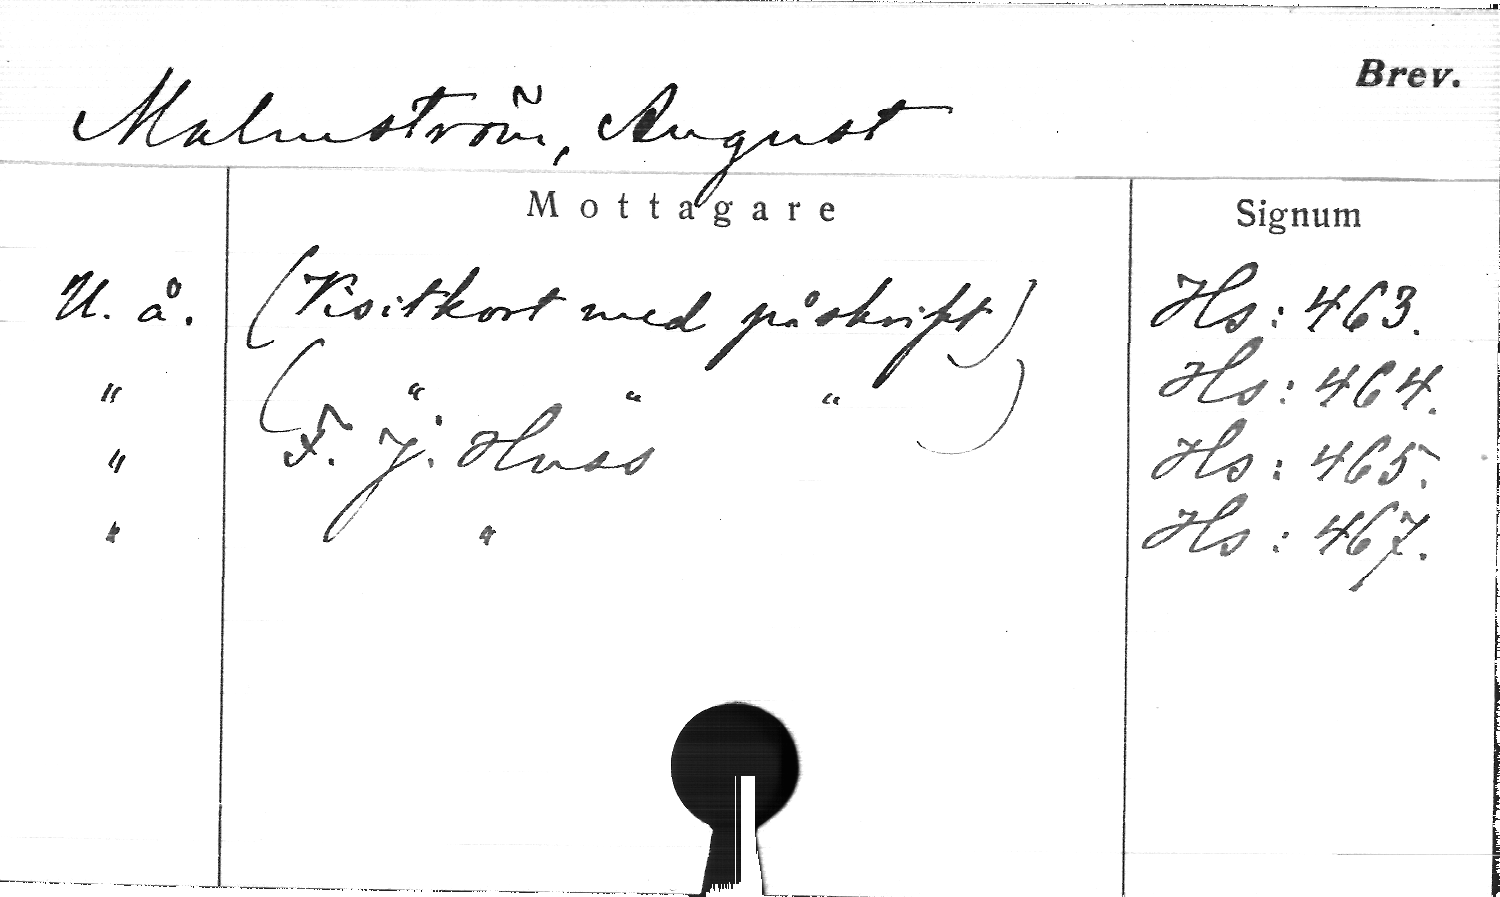 Brev.
Malmström, August
Mottagare Signum
U. å. (Visitkort med påskrift) Hs: 463.
" ( " " " ) Hs: 464.
" F. J. Huss Hs: 465.
" " Hs: 467.